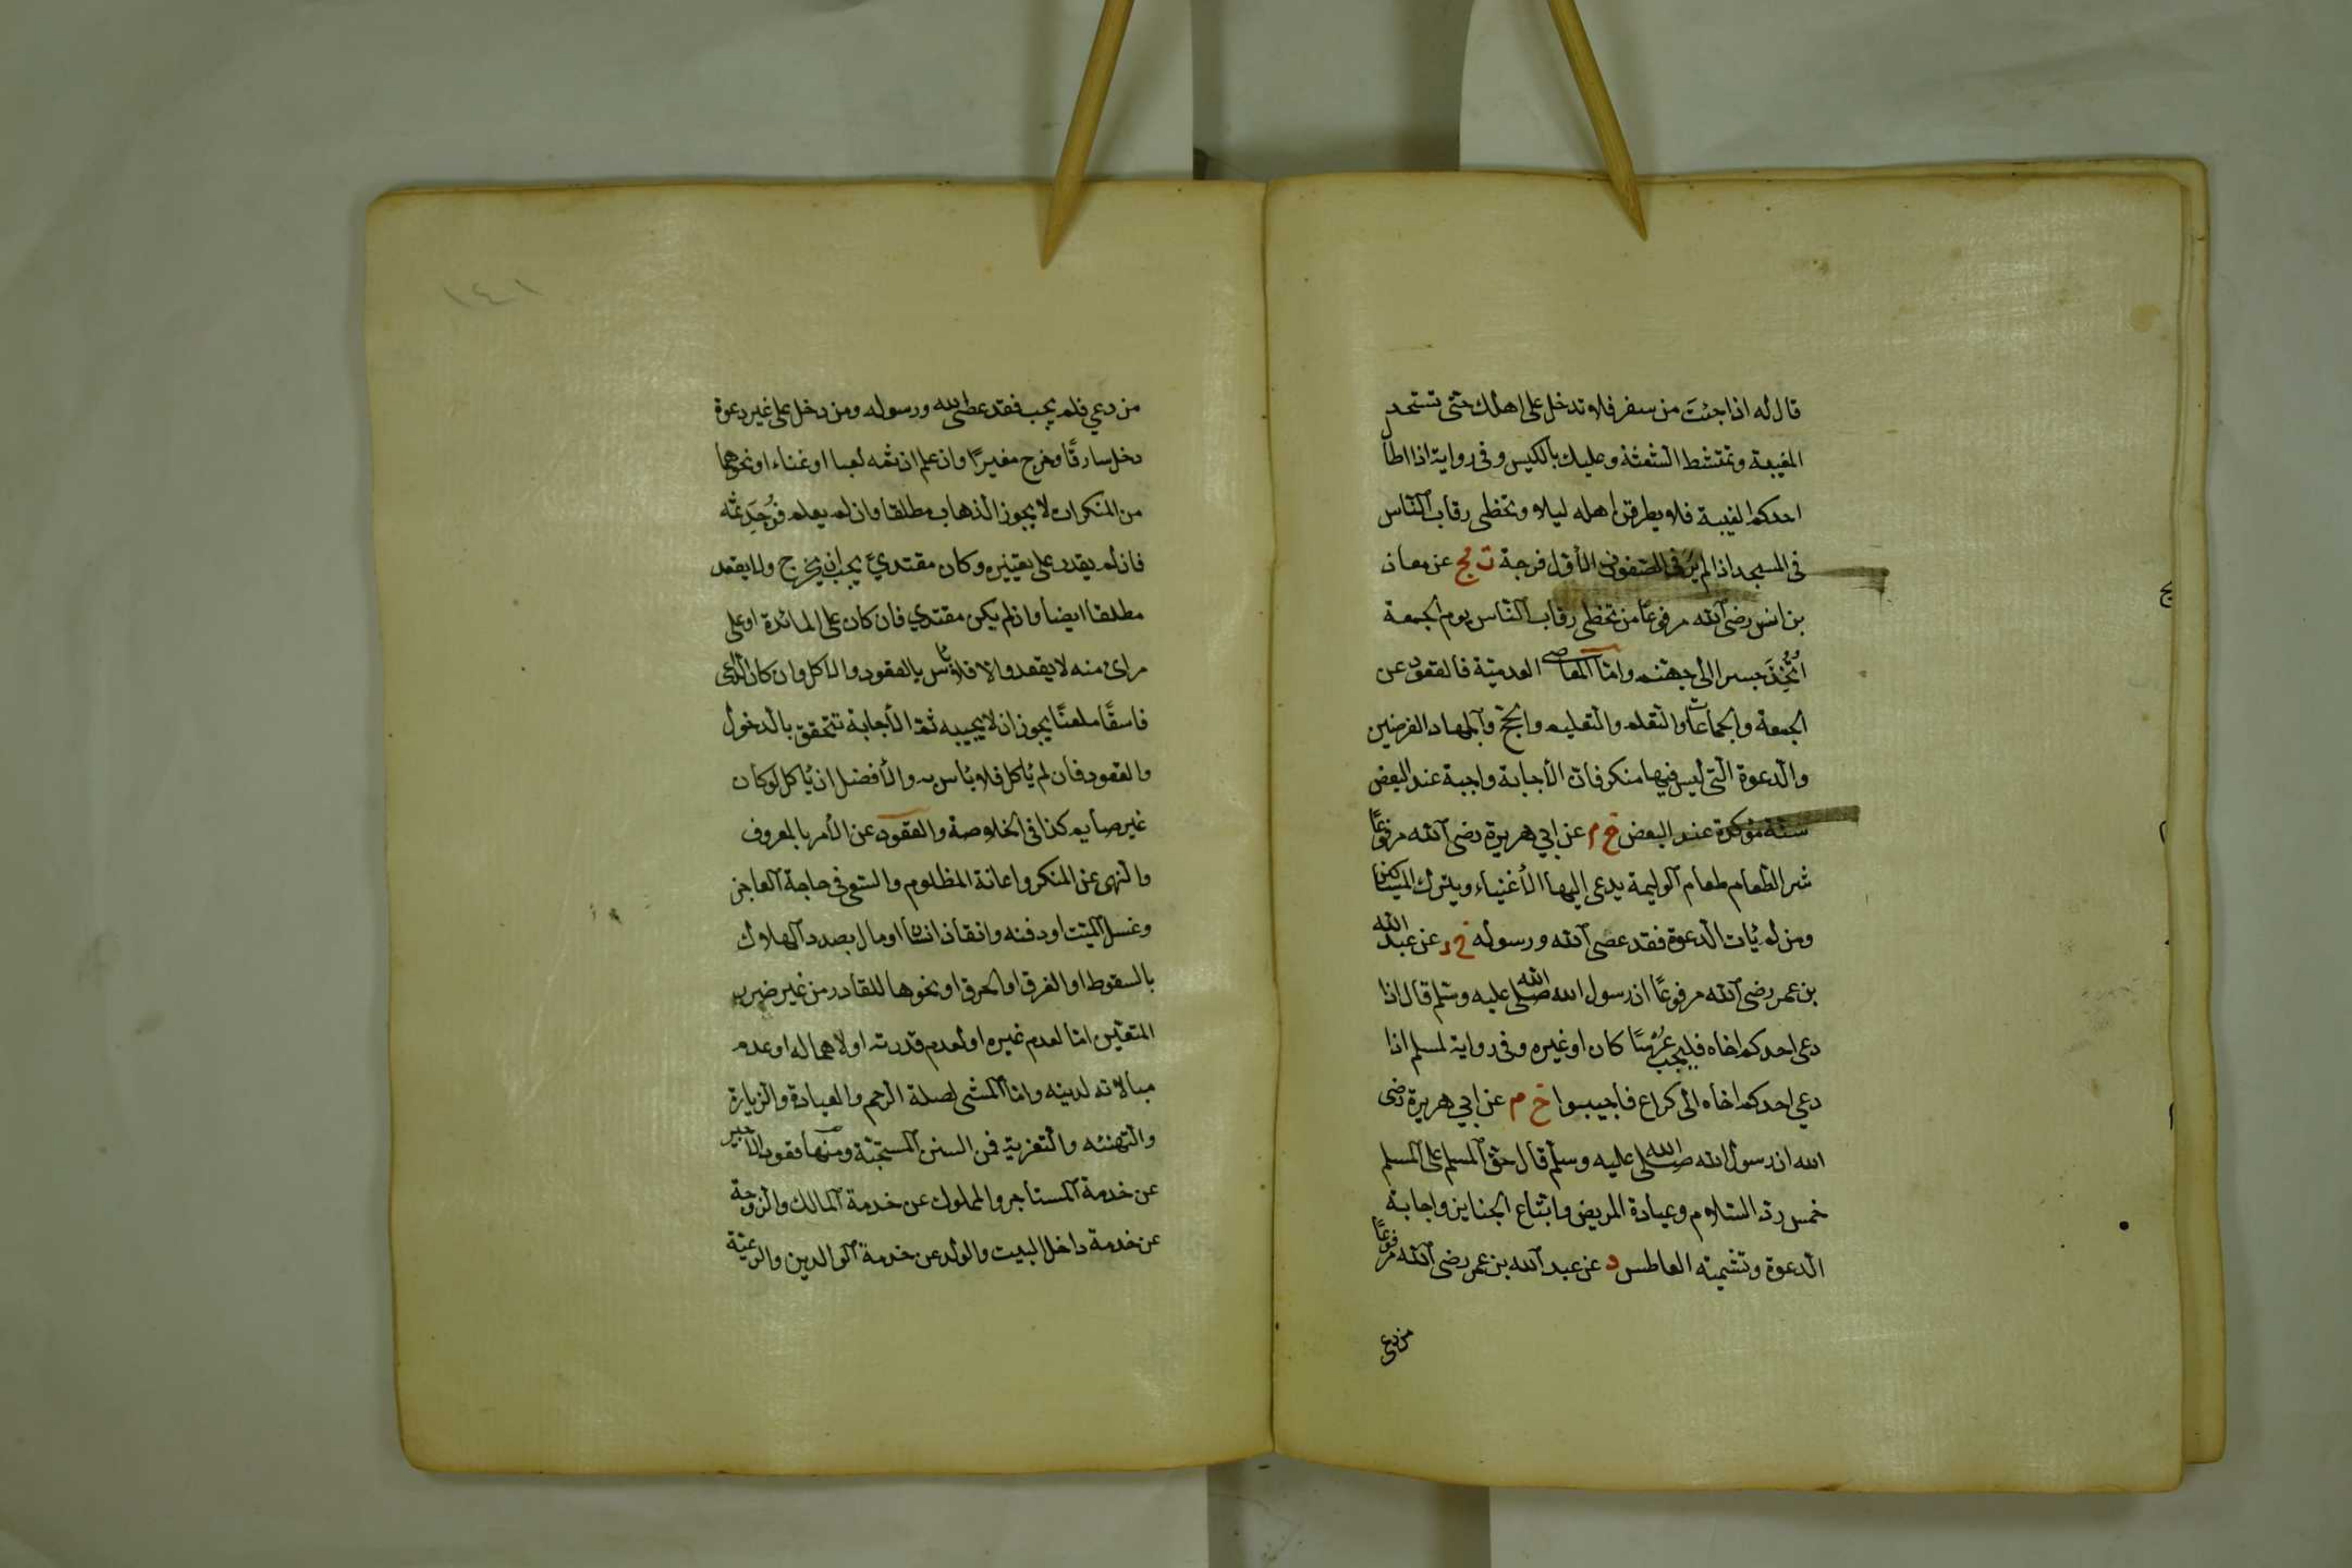 قال له اذا جئتَ من سفر فلا تدخل على اهلك حتى تستحد
المغيبة وتمتشط الشعثة وعليك بالكيس وفى رواية اذا اطا
احدكم الغيبة فلا يطرقن اهله ليلا وتخطى رقاب الناس
فى المسجد اذا لم ير فى الصفوف الأول فرجة ت مج عن معاذ
بن انس رضى الله مرفوعًا من تخطى رقاب الناس يوم الجمعة
اتُّخِذَ جسرا الى جهنم واما المعاصى العدمية فالقعود عن
الجمعة والجماعات والتعلم والتعليم والحج والجهاد الفرضين
والدعوة التى ليس فيها منكر فان الأجابة واجبة عند البعض
سنة مؤكدة عند البعض خ م عن ابي هريرة رضى الله مرفوعًا
شر الطعام طعام الوليمة يدعى إليها الأغنياء ويترك المساكين
ومن لم يأت الدعوة فقد عصى الله ورسوله خ د عن عبد الله
بن عمر رضى الله مرفوعًا ان رسول الله صلى الله عليه وسلم قال اذا
دعى احدكم اخاه فليجب عرسًا كان او غيره وفى رواية لمسلم اذا
دعي احدكم اخاه الى كراع فاجيبوا خ م عن ابي هريرة رضى
الله ان رسول الله صلى الله عليه وسلم قال حق المسلم على المسلم
خمس رد السلام وعيادة المريض واتباع الجنايز واجابة
الدعوة وتشميته العاطس د عن عبد الله بن عمر رضى الله مرفوعًا
من دعى
١٤١
من دعي فلم يجب فقد عصى الله ورسوله ومن دخل على غير دعوة
دخل سارقًا وخرج مغيرًا وان علم ان ثمه لعبا او غناء او نحوهما
من المنكرات لا يجوز الذهاب مطلقا وان لم يعلم فوُجِدَ ثمه
فان لم يقدر على تغييره وكان مقتدي يجب ان يخرج ولا يقعد
مطلقا ايضا وان لم يكن مقتدي فان كان على المائدة او على
مراى منه لا يقعد والا فلا بأس بالقعود والاكل وان كان الداعى
فاسقًا معلنًا يجوز ان لا يجيبه ثم الأجابة تتحقق بالدخول
والقعود فان لم يأكل فلا بأس به والأفضل ان يأكل لو كان
غير صايم كذا فى الخلاصة والقعود عن الأمر بالمعروف
والنهى عن المنكر واعانة المظلوم والسعى فى حاجة العاجز
وغسل الميت او دفنه وانقاذ انسان او مال بصدد الهلاك
بالسقوط او الغرق او الحرق او نحوها للقادر من غير ضرر
المتعين اما لعدم غيره او لعدم قدرته او لاهماله او عدم
مبالاته لدينه واما المشى لصلة الرحم والعيادة والزيارة
والتهنئه والتعزية فمن السنن المستحبة ومنها قعود الأجير
عن خدمة المستاجر والمملوك عن خدمة المالك والزوجة
عن خدمة داخل البيت والولد عن خدمة الوالدين والرعية